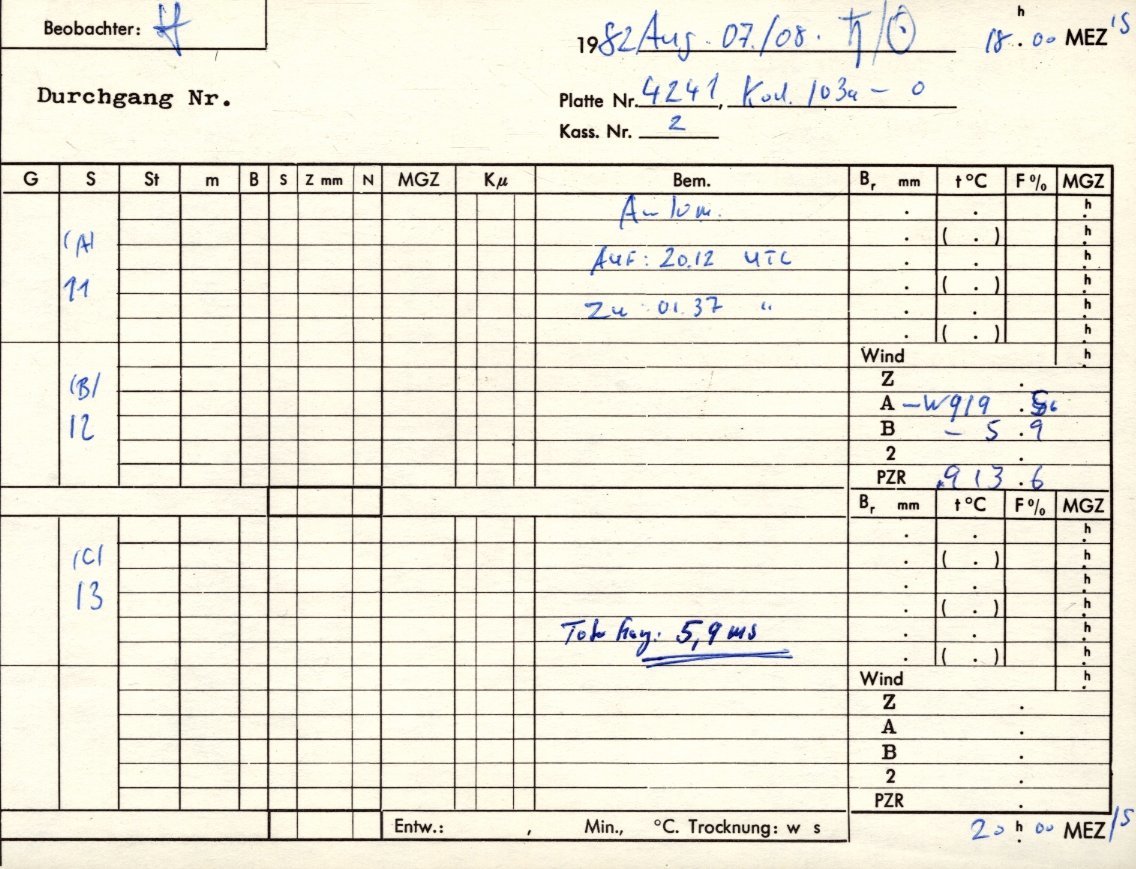 Beobachter:
1982 Aug. 07./08. ♄/☉ 18.h00 MEZ/S
Durchgang Nr.
Platte Nr. 4241, Kod. 103a - O
Kass. Nr. 2
G S St m B S Z mm N MGZ Kμ Bem. Br mm t °C F % MGZ
. . h
(A) . ( . ) h
Auf: 20.12 UTC . . h
11 . ( . ) h
Zu 01.37 " . . h
. ( . ) h
Wind h
(B) Z .
A -W 919 .
12 B - 5 .9
2 .
PZR 913.6
Br mm t °C F % MGZ
. . h
(C) . ( . ) h
13 . . h
. ( . ) h
5,9 ms . . h
. ( . ) h
Wind h
Z .
A .
B .
2 .
PZR .
Entw.: , Min., °C. Trocknung: w s
20 h 00 MEZ/S